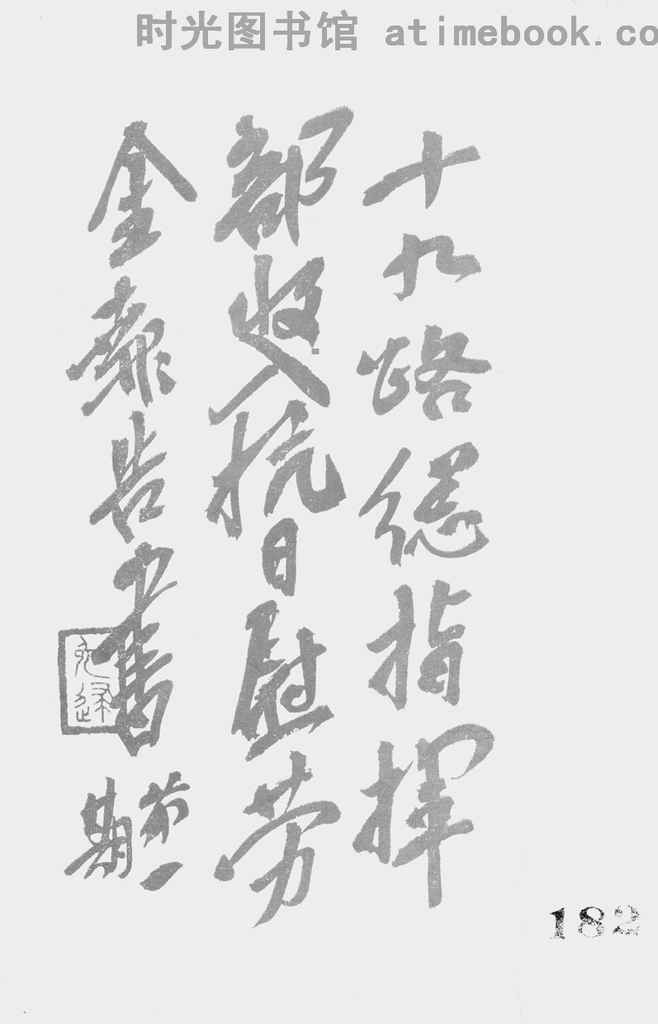 时光图书馆 atimebook.co
十九路總指揮
部收抗日慰劳
金報告書
第一期
182